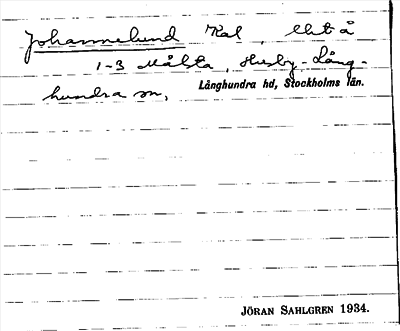 Johannelund Kal, Utå
1-3 Målsta, Husby-Lång-
hundra sn,
Långhundra hd, Stockholms län.
JÖRAN SAHLGREN 1934.